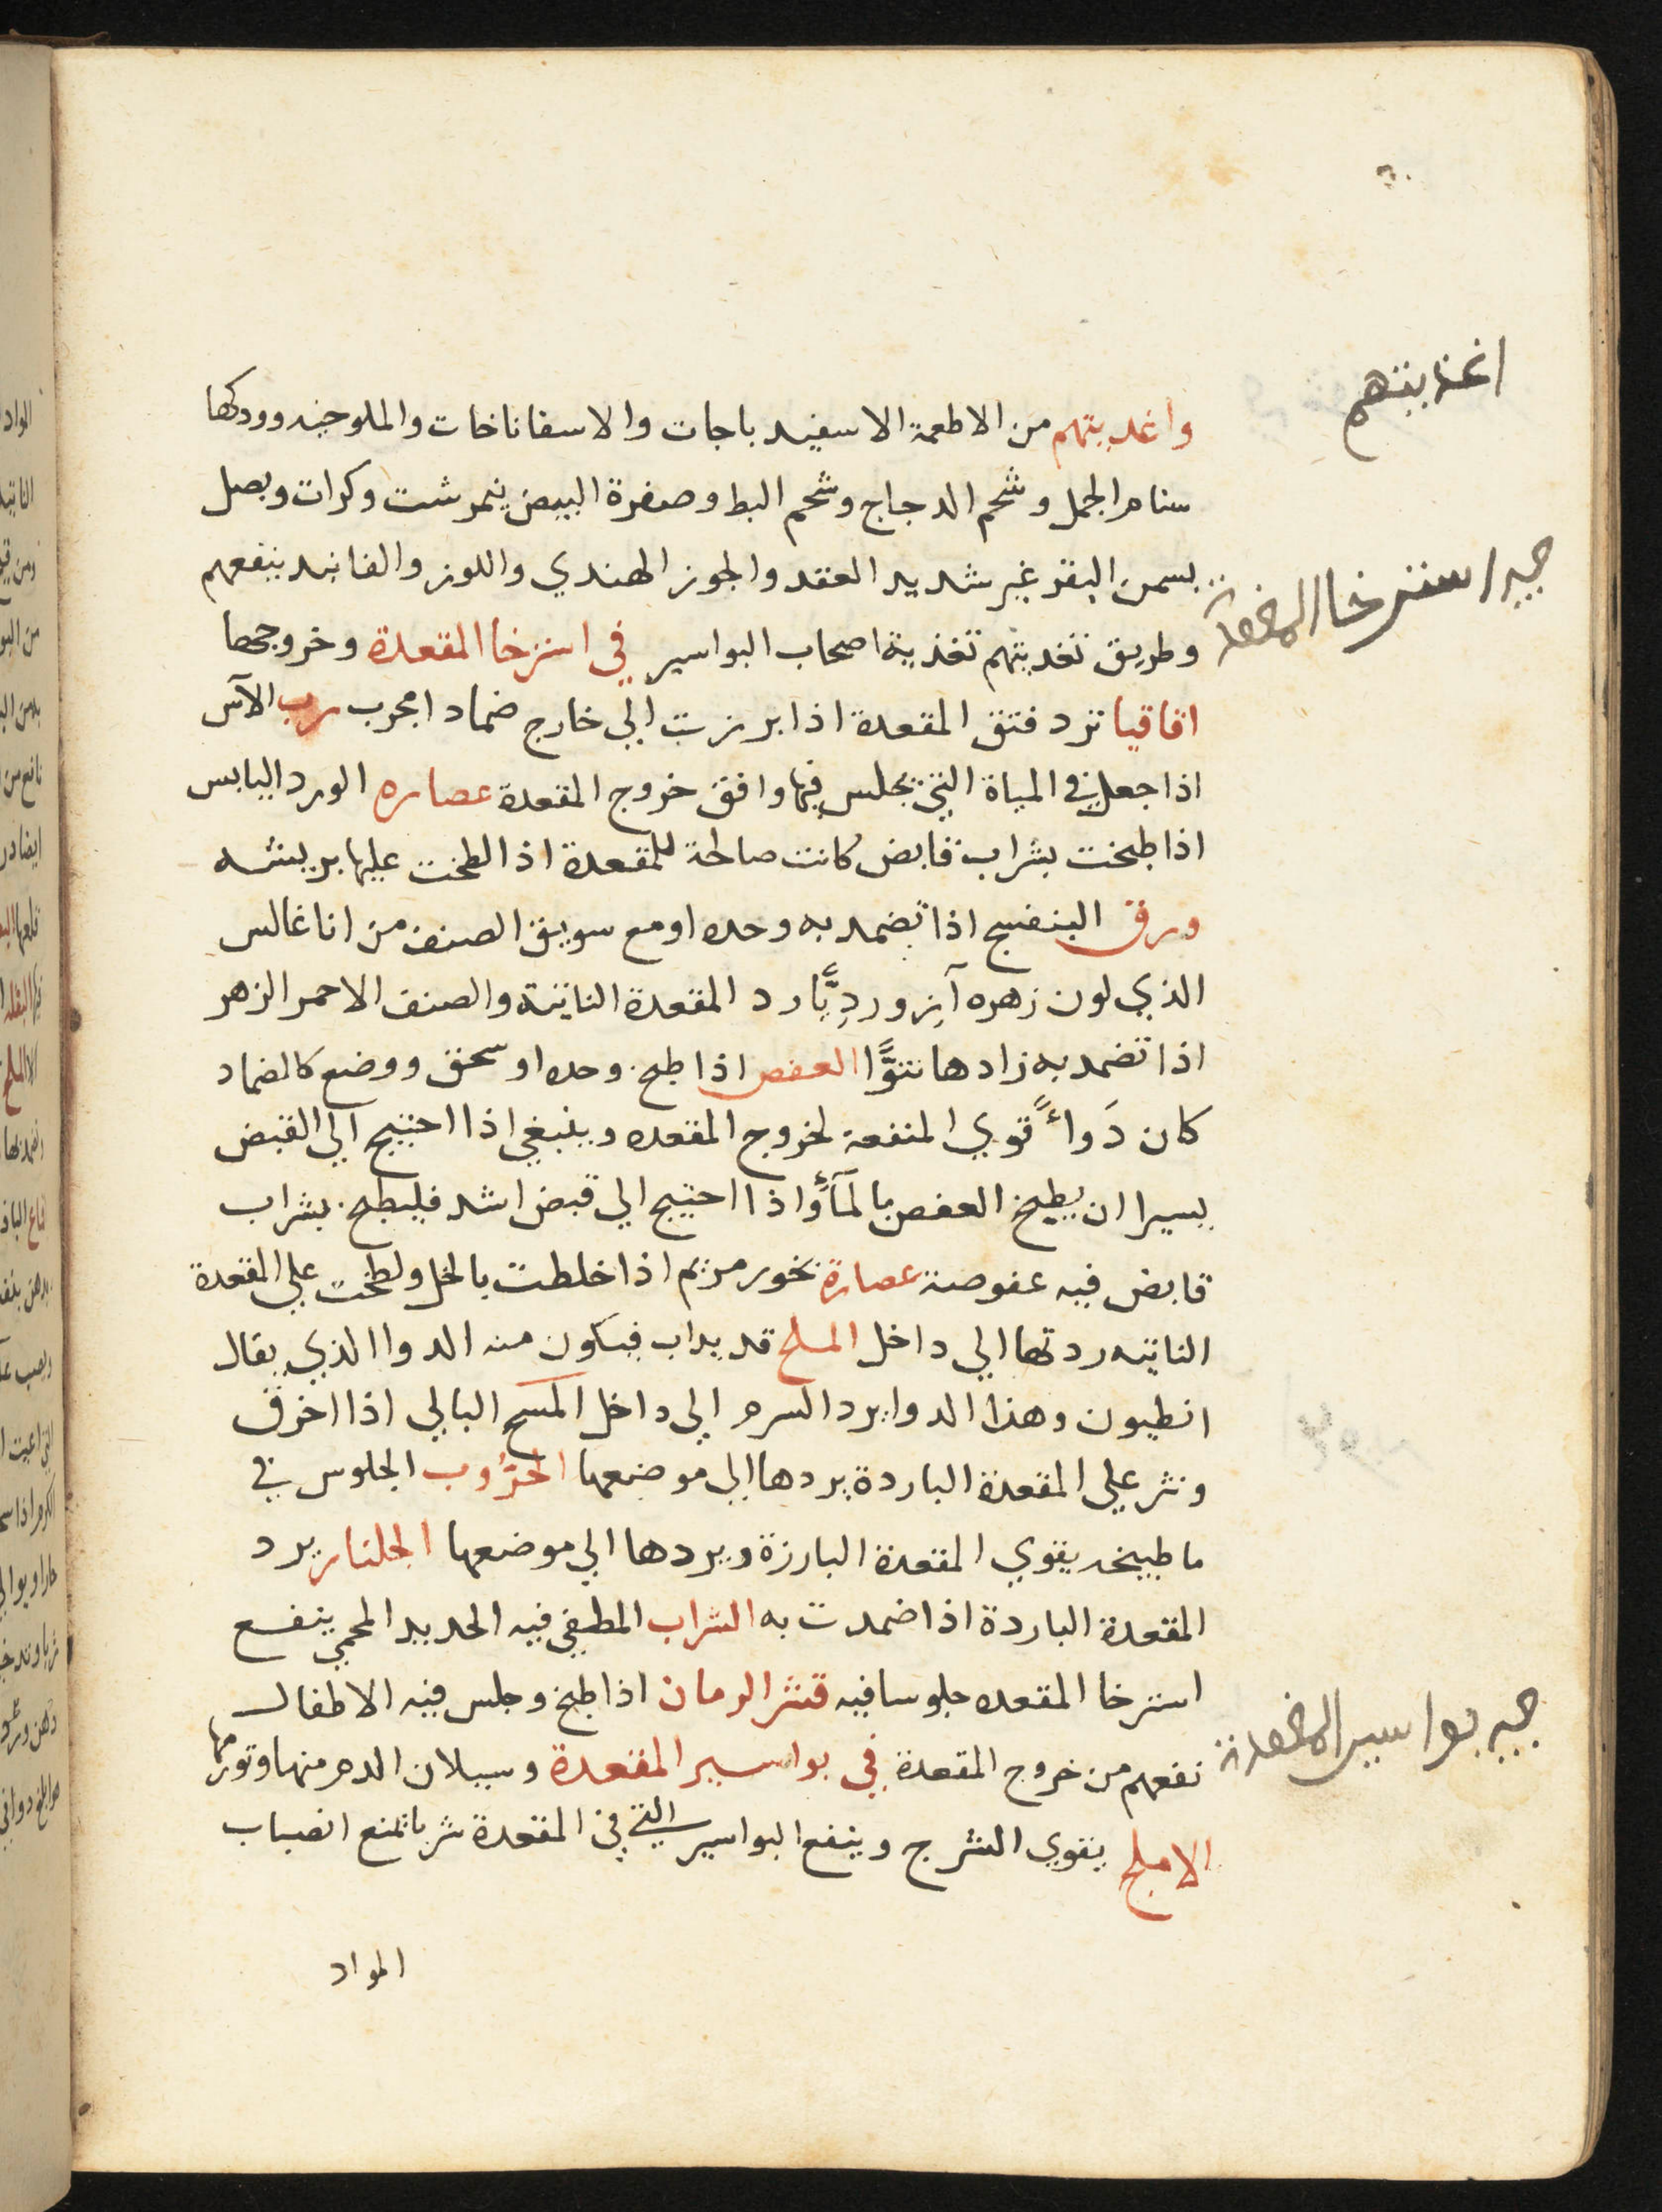 اغذايتهم
واغديتهم من الاطعمة الاسفيد باجات والاسفاناخات والملوخيه وودكها
سنام الجمل وشحم الدجاج وشحم البط وصفرة البيض نيمرشت وكرات وبصل
بسمن البقر غير شديد العقد والجوز الهندي واللوز والفانيد ينفعهم
وطريق تغديتهم تغذية اصحاب البواسير في استرخا المقعدة وخروجها
استرخا المقعدة
اقاقيا ترد فتق المقعدة اذا برزت الي خارج ضمادا مجرب رب الآس
اذا جعل في المياة التي يجلس فيها وافق خروج المقعدة عصاره الورد اليابس
اذا طبخت بشراب قابض كانت صالحة للمقعدة اذا لطخت عليها بريشه
ورق البنفسج اذا تضمد به وحده او مع سويق الصنف من اناغالس
الذي لون زهره آزوردِيًّا رد المقعدة الناتية والصنف الاحمر الزهر
اذا تضمد به زادها نتوًّا العفص اذا طبخ وحده او سحق ووضع كالضماد
كان دَواءً قوي المنفعة لخروج المقعده وينبغي اذا احتيج الي القبض
يسيرا ان يطبخ العفص بالمآء واذا احتيج الي قبض اشد فليطبخ بشراب
قابض فيه عفوصة عصارة بخور مريم اذا خلطت بالخل ولطخت علي المقعدة
الناتيه ردتها الي داخل الملح قد يداب فيكون منه الدوا الذي يقال
انطيون وهذا الدوا يرد السرم الي داخل المسح البالي اذا احرق
ونثر علي المقعدة الباردة يردها الي موضعها الخرُّوب الجلوس في
ما طبيخه يقوي المقعدة البارزة ويردها الي موضعها الجلنار يرد
المقعدة الباردة اذا ضمدت به الشراب المطفي فيه الحديد المحمي ينفع
استرخا المقعده جلوسا فيه قشر الرمان اذا طبخ وجلس فيه الاطفال
نفعهم من خروج المقعدة في بواسير المقعدة وسيلان الدم منها وتورمها
بواسير المقعدة
الاملج يقوي الشرج وينفع البواسير التي في المقعدة شربا تمنع انصباب
المواد